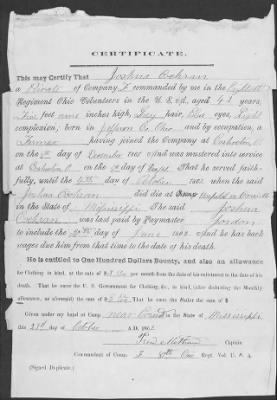 CERTIFICATE.
This may Certify That Joshua Cochran
a Private of Company F commanded by me in the
Regiment Ohio Volunteers in the U. S. A, aged years,
Five feet nine inches high, Grey hair, Blue eyes, Light
complexion, born in Jefferson Co. Ohio and by occupation, a
Farmer having joined the Company at Coshocton O
on the day of December 1861 And was mustered into service
at on the day of That he served faith-
fully, until the day of October 1862 when the said
Joshua Cochran did die at Camp
in the State of Mississippi The said Joshua
Cochran was last paid by Paymaster
to include the day of June 1862 And he has back
wages due him from that time to the date of his death.
He is entitled to One Hundred Dollars Bounty, and also an allowance
for Clothing in kind, at the rate of $ per month from the date of his enlistment to the date of his
death. That he owes the U. S. Government for Clothing &c., in kind, (after deducting the Monthly
allowance, as aforesaid) the sum of $ That he owes the Sutler the sum of $
Given under my hand at Camp near Corinth in the State of Mississippi
this day of October A.D. 1862
Captain
Commandant of Comp. F Ohio Regt. Vol U. S. A.
(Signed Duplicate.)